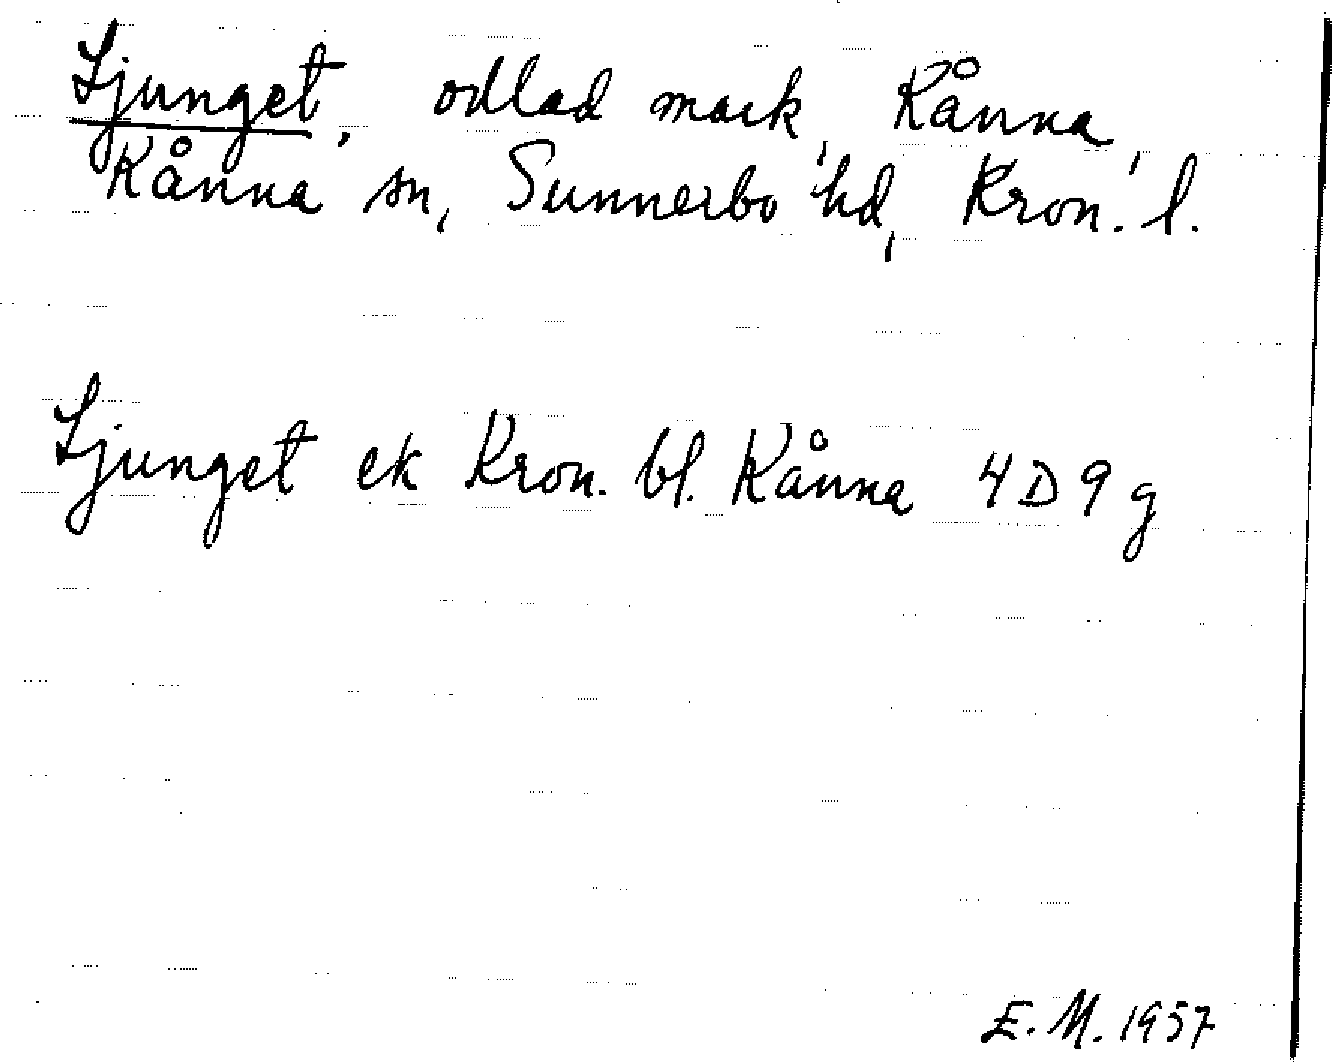 Ljunget, odlad mark, Kånna,
Kånna sn, Sunnerbo hd, Kron. l.
Ljunget ek Kron. bl. Kånna 4D9g
E.M. 1957